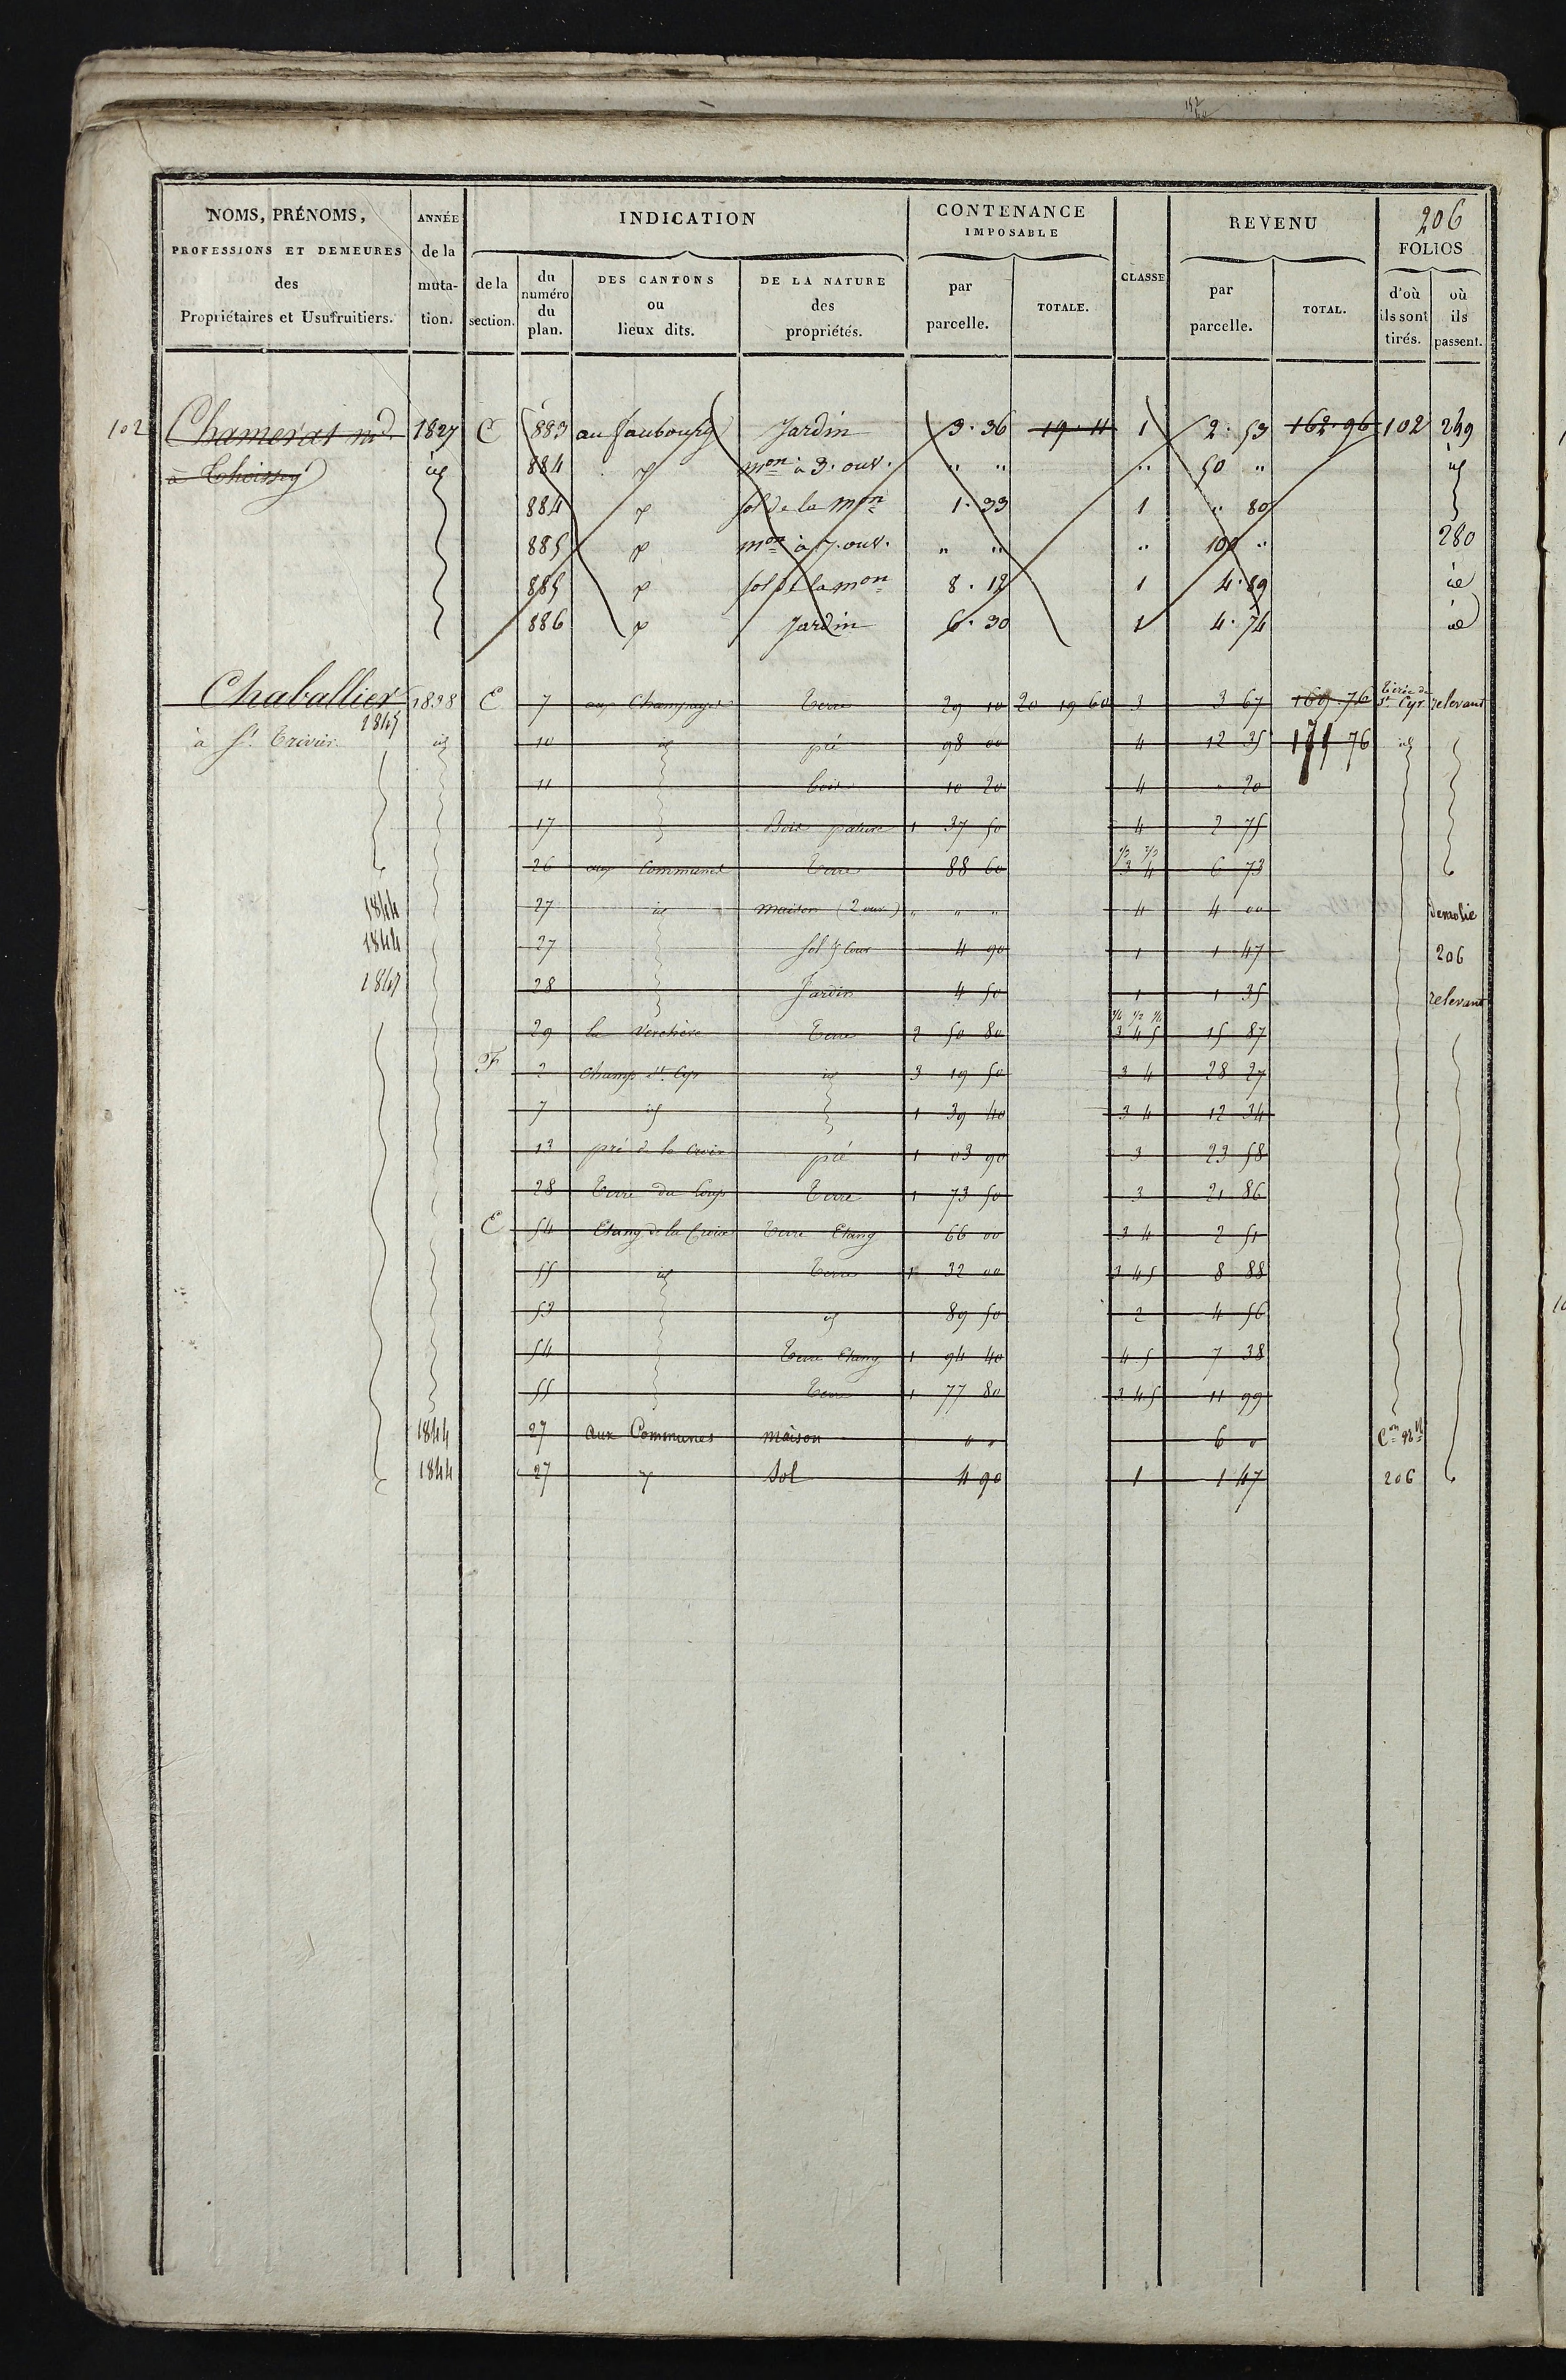 206
NOMS, PRÉNOMS, PROFESSIONS ET DEMEURES des Propriétaires et Usufruitiers.
ANNÉE de la muta- tion.
INDICATION
de la section.
du numéro du plan.
DES CANTONS ou lieux dits.
DE LA NATURE des propriétés.
CONTENANCE IMPOSABLE
par parcelle.
TOTALE.
CLASSE
REVENU
par parcelle.
TOTAL.
FOLIOS
d'où ils sont tirés.
où ils passent.
102 Chamerat md. 1827 C 883 au faubourg Jardin 3. 36 19. 11 1 2. 53 162. 96 102 249
à Thoissey id 884 mon à 3. ouv. " " " 50 " id
884 sol de la mon 1. 33 1 " 80
885 mon à 7. ouv. " " " 100 " 280
885 sol de la mon 8. 12 1 4. 89 id
886 Jardin 6. 30 1 4. 74 id
Chaballier 1838 E 7 aux Champagnes Terre 29 10 20 19 60 3 3 67 169 76 Tirée de St. Cyr relevant
1845
à St. Trivier id 10 id pré 98 00 4 12 35 171 76 id
11 bois 10 20 4 . 20
17 Bois pature 1 37 50 4 2 75
26 aux Communes Terre 88 60 1/3 2/3 3 4 6 73
1844 27 id maison (2 ouv.) " " " 4 4 00 démolie
1844 27 sol & cour 4 90 1 1 47 206
1845 28 Jardin 4 50 1 1 35 relevant
29 la Verchère Terre 2 50 80 1/4 1/2 1/4 3 4 5 15 87
F 2 Champ St. Cyr id 3 19 50 3 4 28 27
7 id 1 39 40 3 4 12 34
13 pré de la Croix pré 1 03 90 3 23 58
28 Terre du Loup Terre 1 73 50 3 21 86
E 54 Etang de la Croix Terre Etang 66 00 3 4 2 51
55 id Terre 1 32 00 3 4 5 8 88
53 id 89 50 2 4 56
54 Terre Etang 1 94 40 4 5 7 38
55 Terre 1 77 80 3 4 5 11 99
1844 27 Aux Communes maison " " 6 " Con nlle
1844 27 Sol 4 90 1 1 47 206